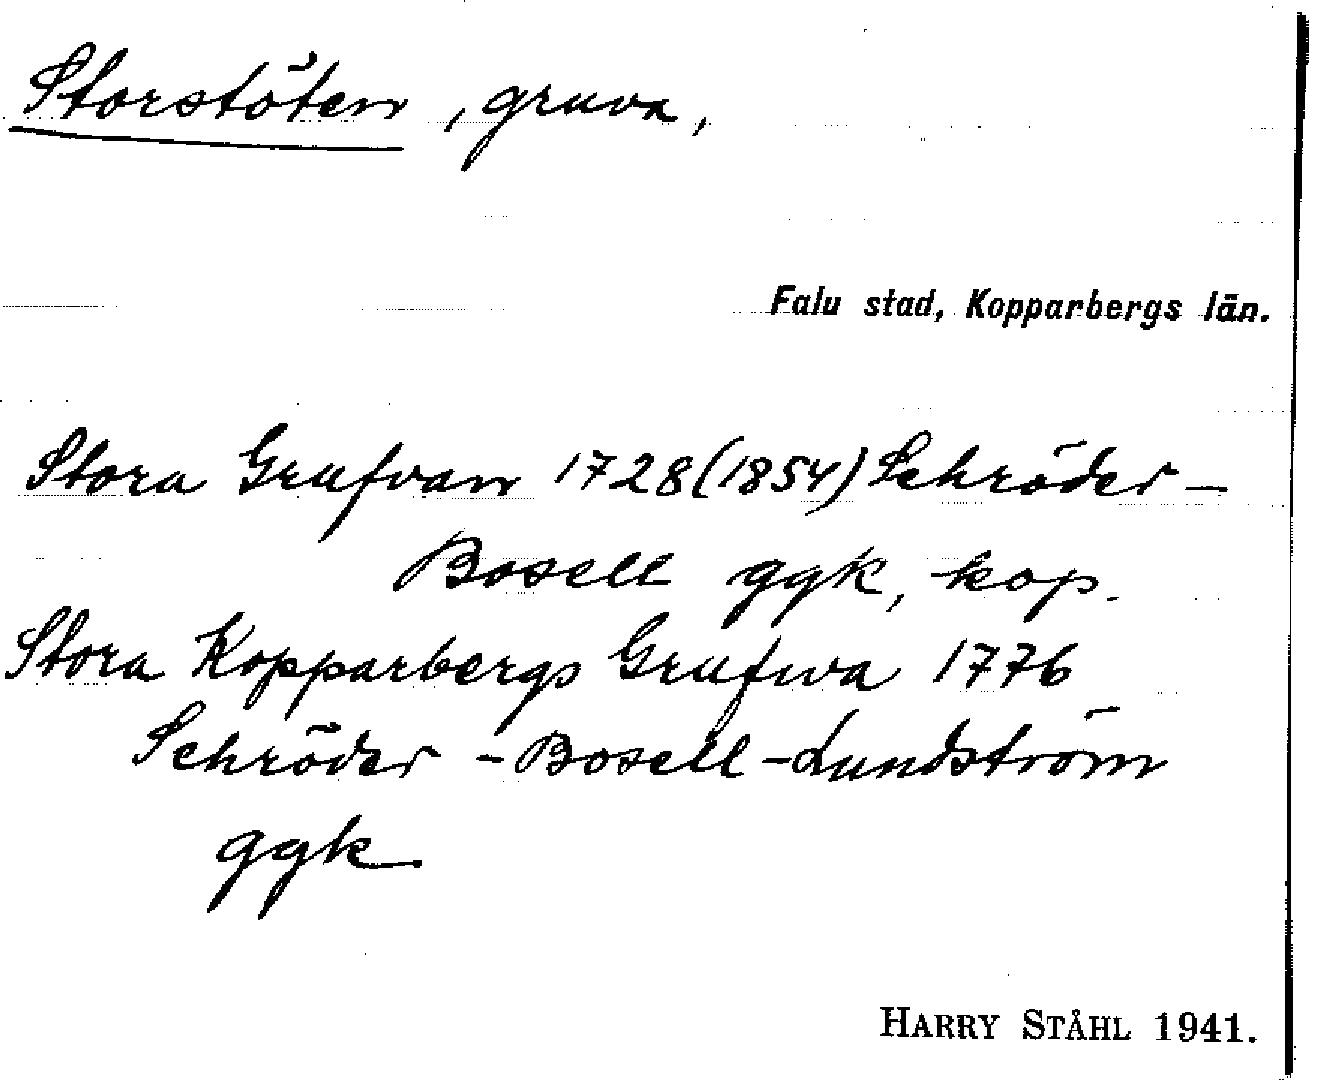 Storstöten, gruva,
Falu stad, Kopparbergs län.
Stora Grufvan 1728 (1854) Schröder-
Bosell ggk, kop.
Stora Kopparbergs Grufwa 1776
Schröder - Bosell - Lundström
ggk
HARRY STÅHL 1941.